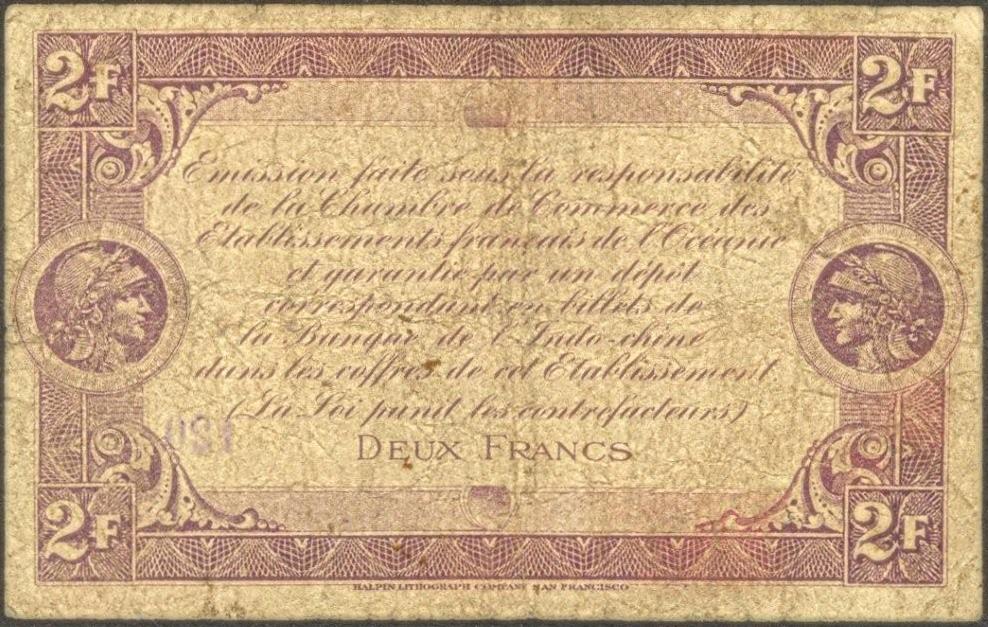 2F 2F
Emission faite sous la responsabilité
de la Chambre de Commerce des
Etablissements français de l'Océanie
et garantie par un dépôt
correspondant en billets de
la Banque de l'Indo-chine
dans les coffres de cet Etablissement
(La Loi punit les contrefacteurs)
DEUX FRANCS
2F 2F
HALPIN LITHOGRAPH COMPANY SAN FRANCISCO